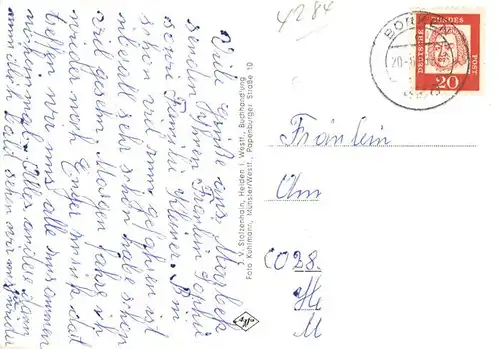 4284
BORKEN
20
DEUTSCHE BUNDESPOST
20
Viele Grüße aus Marbek
senden Ihnen Fräulein Sophie
Familie Kleiner. Bin
schon viel rum gefahren ist
überall sehr schön habe schon
viel gesehn. Morgen fahre ich
wieder nach Enger mein dat
treffen wir uns alle zusammen
nochmal. Alles andere dann
wenn ich bald sehen wir uns wieder
J. V. Stolzenhain, Heiden i. Westf., Buchhandlung
Foto Kuhlmann, Münster/Westf., Papenburger Straße 10
Fräulein
Am
CO28.
He
M